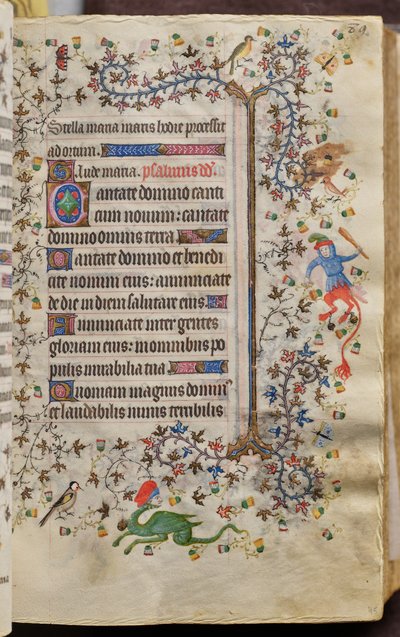 Stella maria maris hodie processit
ad ortum.
Aude maria. psalmus dd.
Cantate domino canti
cum novum: cantate
domino omnis terra
Cantate domino et benedi
cite nomini eius: annunciate
de die in diem salutare eius
Annunciate inter gentes
gloriam eius: in omnibus po
pulis mirabilia tua
Quoniam magnus dominus
et laudabilis nimis terribilis